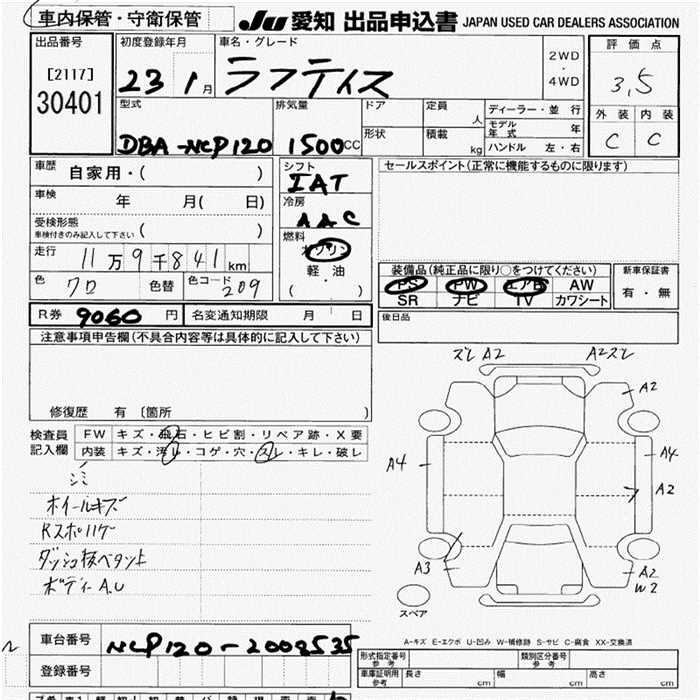 車内保管・守衛保管 JU 愛知 出品申込書 JAPAN USED CAR DEALERS ASSOCIATION
出品番号 [2117] 30401
初度登録年月 23 1月
車名・グレード ラフティス
2WD・4WD
評価点 3.5
外装 内装
C C
型式 DBA-NCP120
排気量 1500cc
ドア 定員 人
形状 積載 kg
ディーラー・並行
モデル年式 年
ハンドル 左・右
車歴 自家用・( )
車検 年 月( 日)
受検形態 車検付きのみ記入して下さい ( )
走行 11万9千841km
色 クロ 色替 色コード 209
シフト IAT
冷房 AAC
燃料 ガソリン
軽油
( ・ )
セールスポイント(正常に機能するものに限ります)
装備品(純正品に限り○をつけてください)
PS PW エアB AW
SR ナビ TV カワシート
新車保証書
有・無
後日品
R券 9060円 名変通知期限 月 日
注意事項申告欄(不具合内容等は具体的に記入して下さい)
修復歴 有 〔箇所 〕
検査員記入欄
FW キズ・飛石・ヒビ割・リペア跡・X要
内装 キズ・汚レ・コゲ・穴・スレ・キレ・破レ
シミ
ホイールキズ
Rスポハゲ
ダッシュ板ベタツ上
ボディーA.U
ズレ A2 A2ズレ
A2
A4 A4
A2
A3 A2
W2
スペア
A-キズ E-エクボ U-凹み W-補修跡 S-サビ C-腐食 XX-交換済
車台番号 NCP120-2008535
登録番号
形式指定番号 参考 類別区分番号 参考
車庫証明用 参考 長さ cm 幅 cm 高さ cm